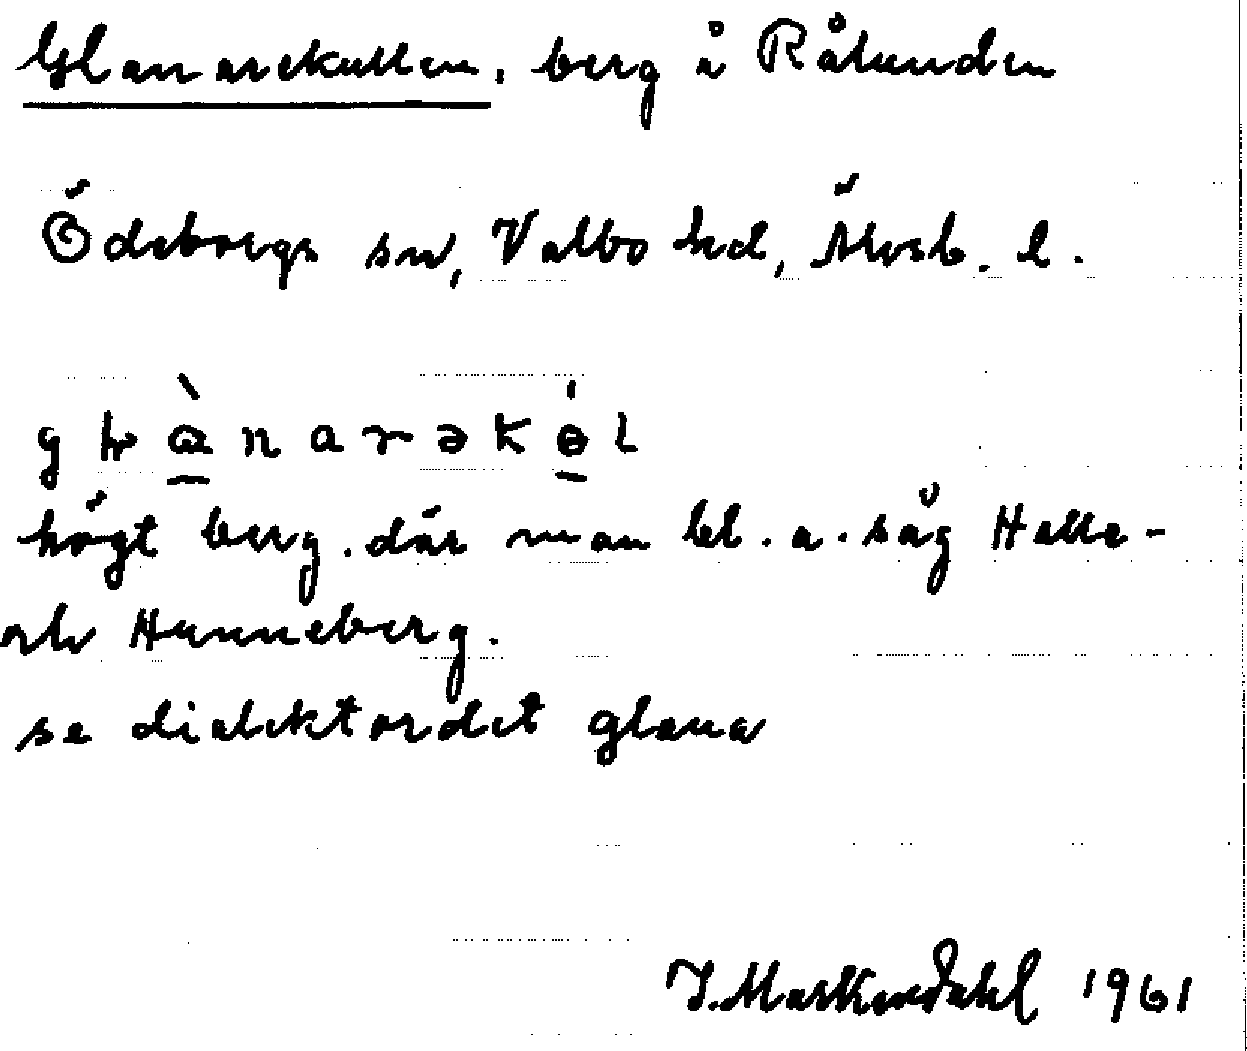 Glanarekullen, berg å Rålunden
Ödeborgs sn, Valbo hd, Älvsb. l.
högt berg. där man bl. a. såg Halle-
och Hunneberg.
se dialektordet glana
1961